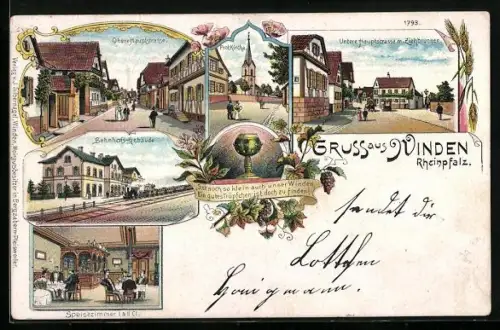 1793.
Obere Hauptstrasse.
Prot. Kirche
Untere Hauptstrasse m. Ziehbrunnen
Bahnhofs-Gebäude
GRUSS aus WINDEN
Rheinpfalz.
Ist noch so klein auch unser Winden
Ein gutes Tröpfchen ist doch zu finden!
Speisezimmer I & II Cl.
sendet dir
Lottchen